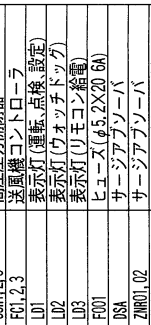 FC1,2,3 送風機コントローラ
LD1 表示灯(運転、点検、設定)
LD2 表示灯(ウォッチドッグ)
LD3 表示灯(リモコン給電)
F001 ヒューズ(φ5.2×20 6A)
DSA サージアブソーバ
ZNR01,02 サージアブソーバ